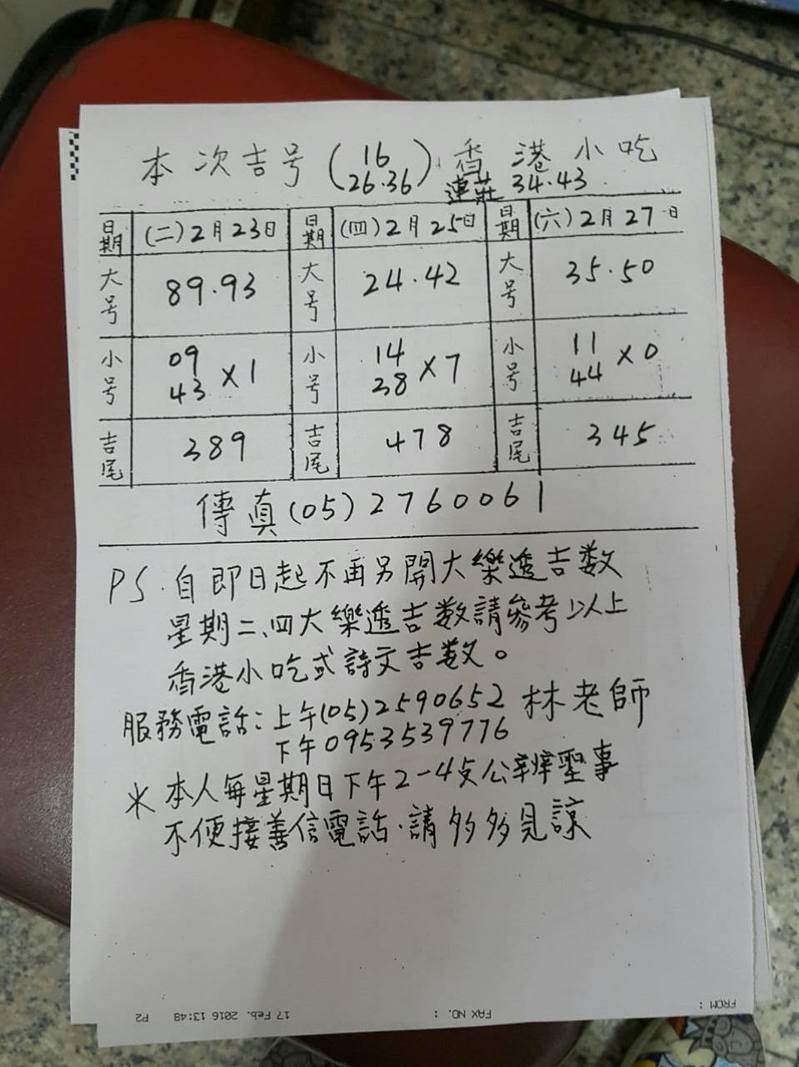 本次吉号(16 26.36)香港小吃
連莊 34.43
日期 (二)2月23日 日期 (四)2月25日 日期 (六)2月27日
大号 89.93 大号 24.42 大号 35.50
小号 09 43 X1 小号 14 38 X7 小号 11 44 X0
吉尾 389 吉尾 478 吉尾 345
傳真(05)2760061
PS.自即日起不再另開大樂透吉数
星期二、四大樂透吉数請參考以上
香港小吃或詩文吉数。
服務電話:上午(05)2590652 林老師
下午0953539776
*本人每星期日下午2-4支公辦聖事
不便接善信電話.請多多見諒
FROM :
FAX NO. :
17 Feb. 2016 13:48
P2